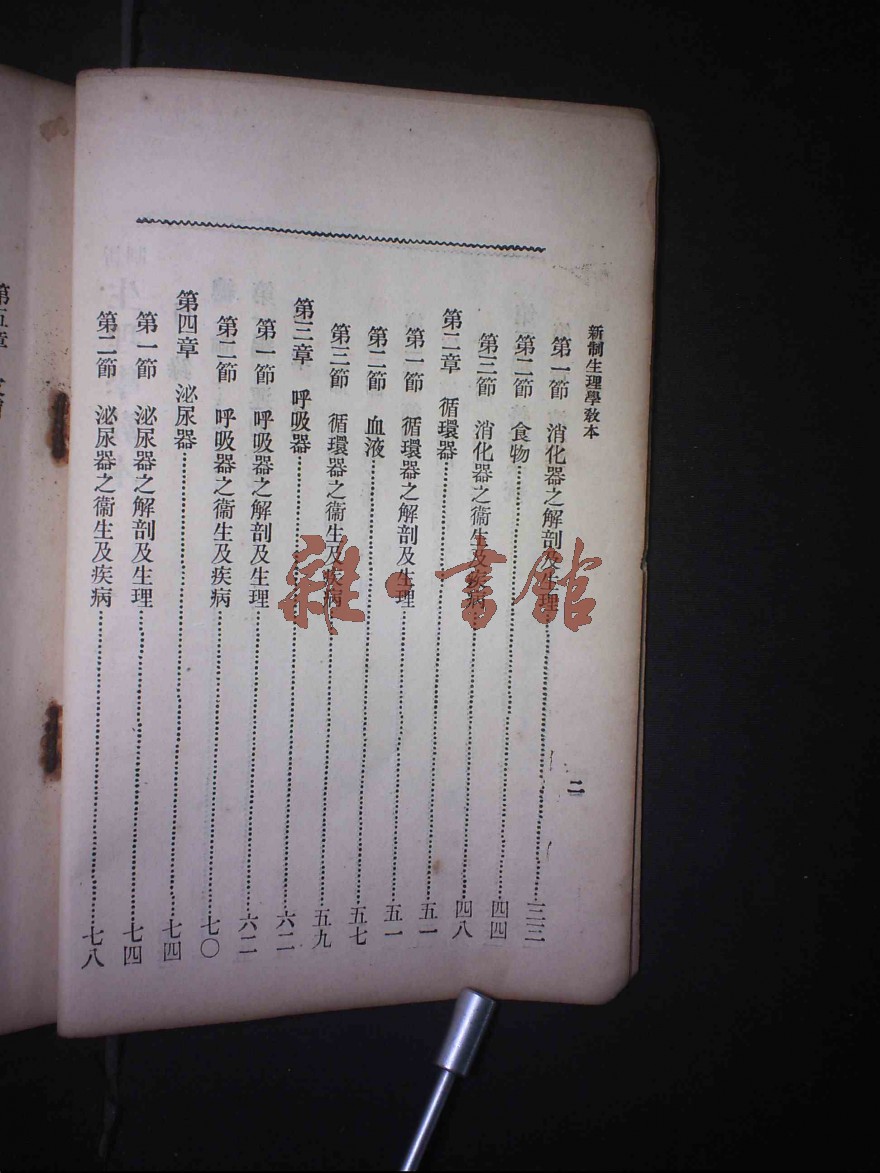 新制生理學敎本
二
第一節 消化器之解剖及生理 三三
第二節 食物 四四
第三節 消化器之衞生及疾病 四八
第二章 循環器 五一
第一節 循環器之解剖及生理 五一
第二節 血液 五七
第三節 循環器之衞生及疾病 五九
第三章 呼吸器 六二
第一節 呼吸器之解剖及生理 六二
第二節 呼吸器之衞生及疾病 七〇
第四章 泌尿器 七四
第一節 泌尿器之解剖及生理 七四
第二節 泌尿器之衞生及疾病 七八
第五章
雜·書館